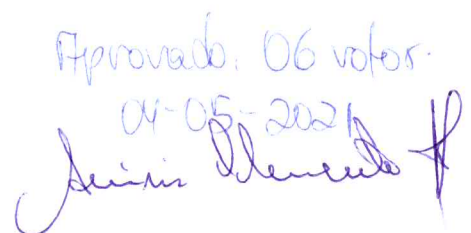 Aprovado. 06 votos.
04-05-2021